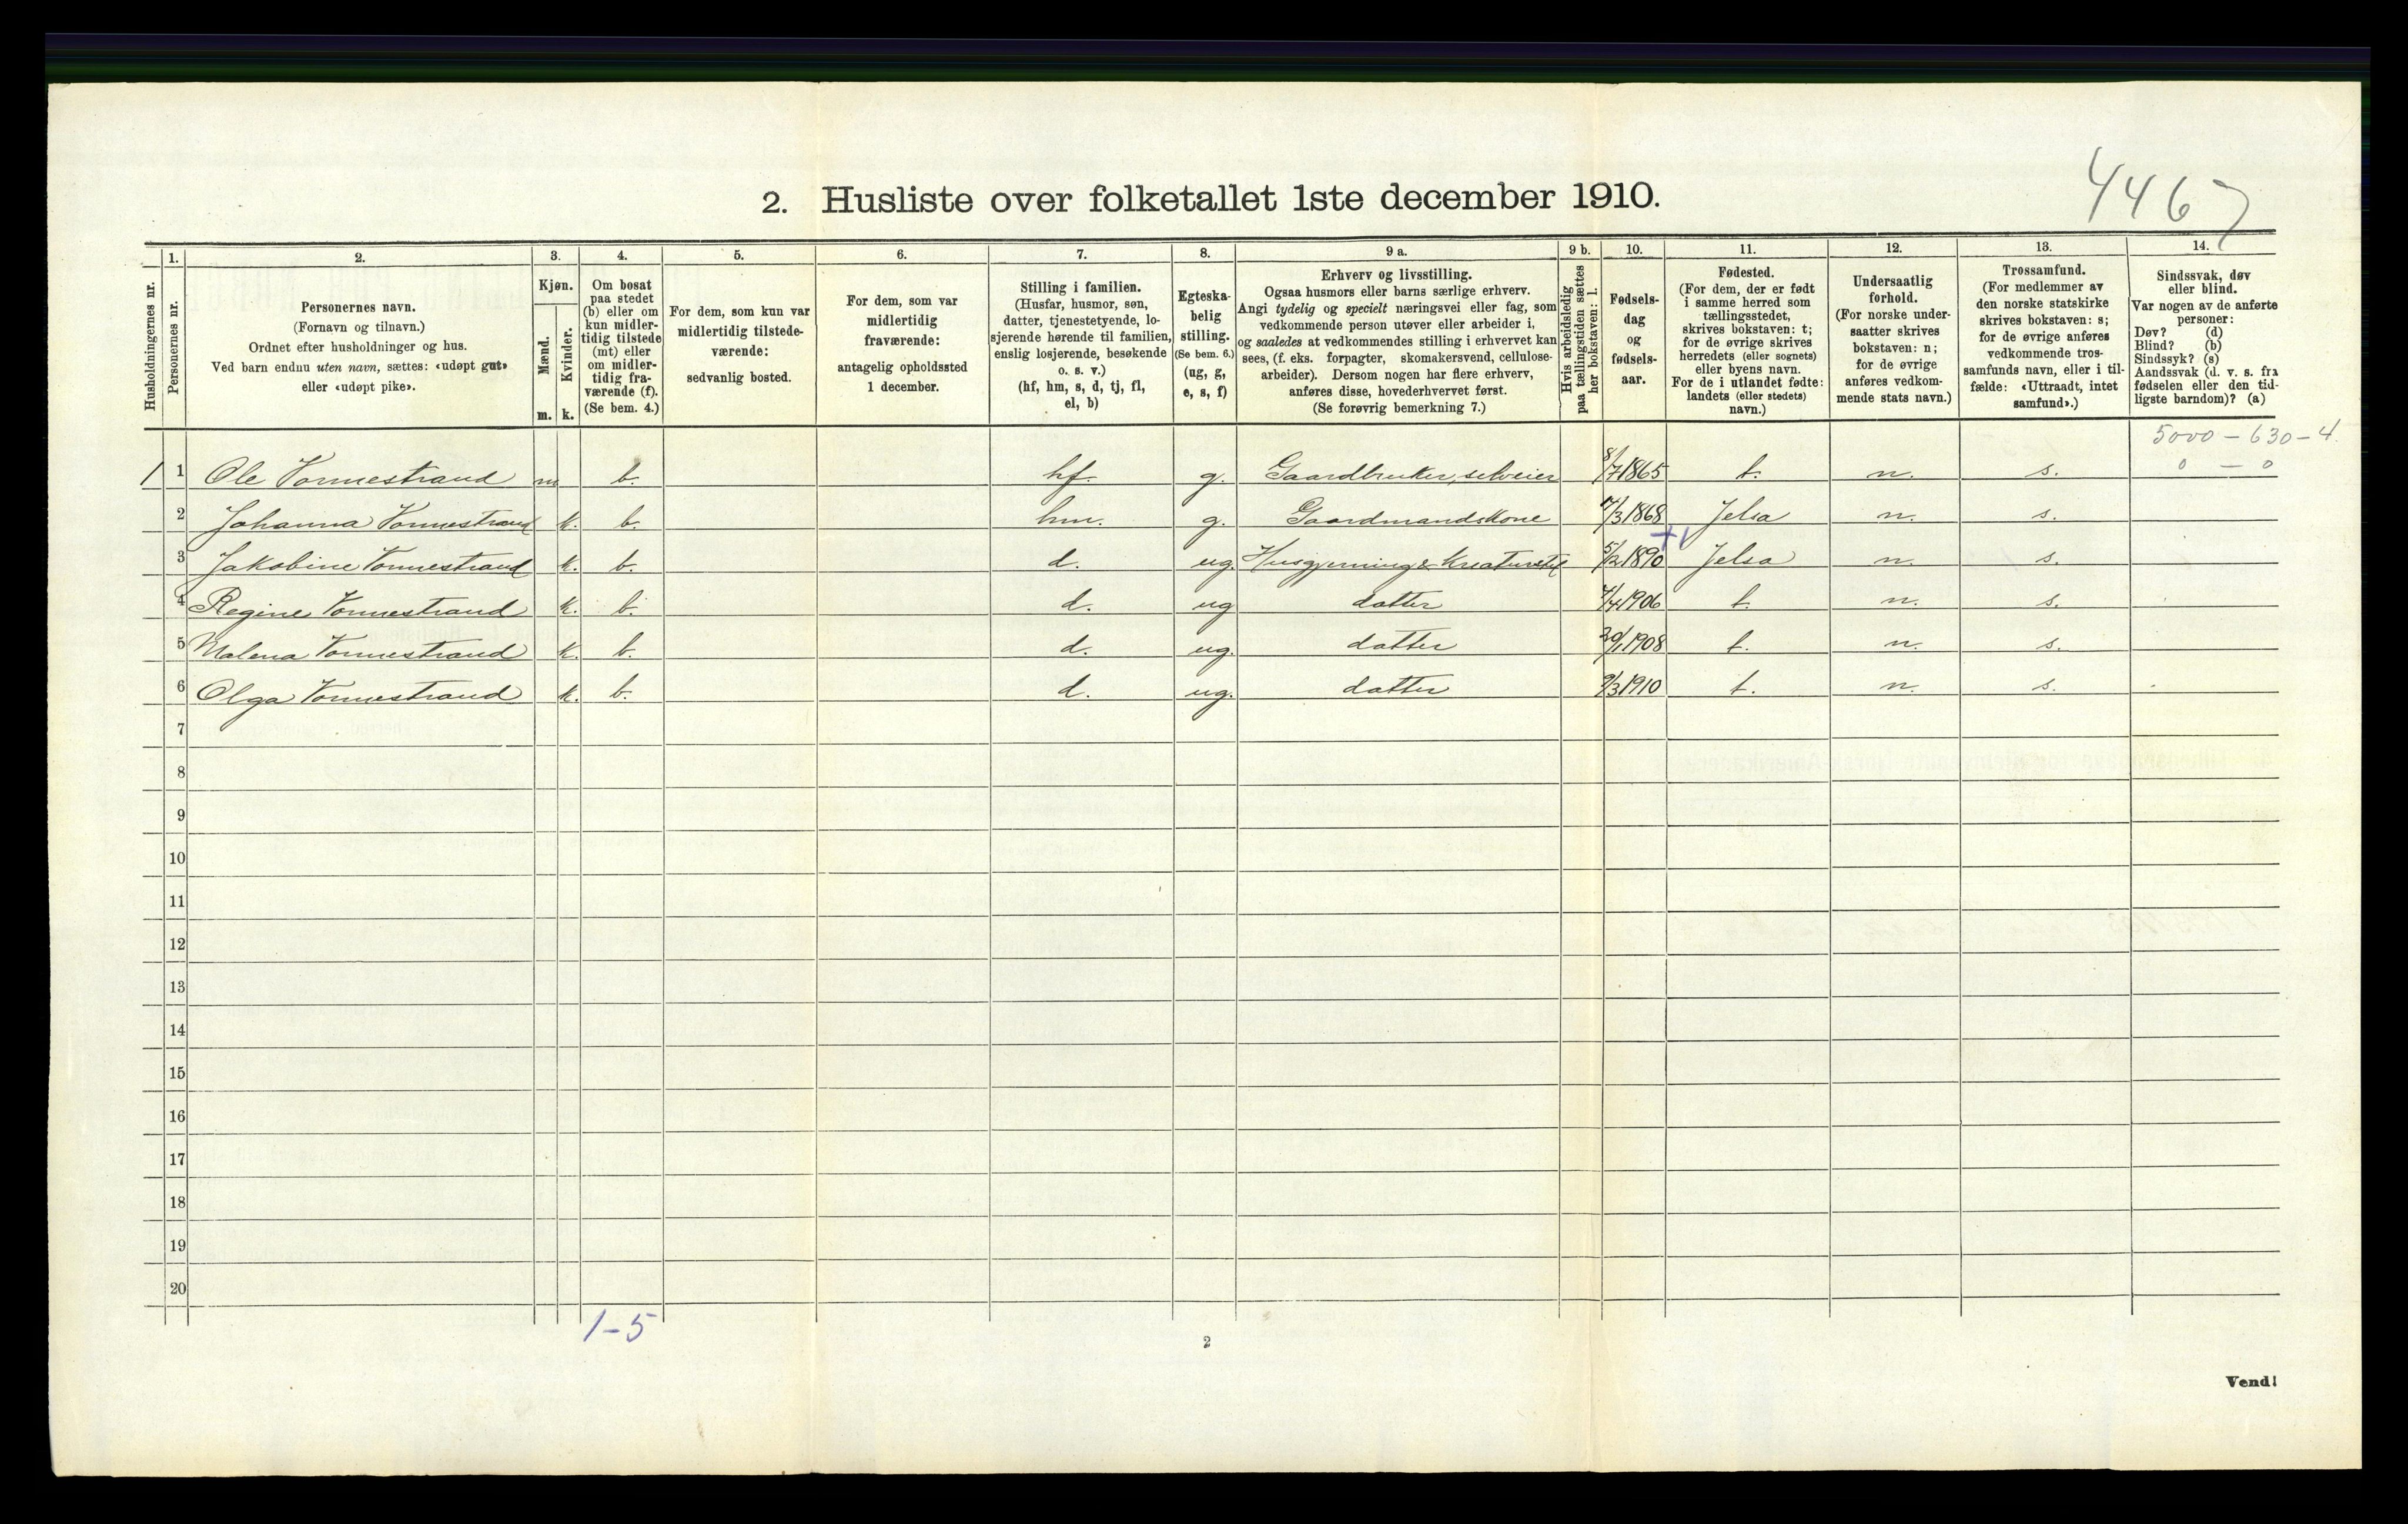 2. Husliste over folketallet 1ste december 1910.
4467
Husholdningernes nr.
1. Personernes nr.
2. Personernes navn.
(Fornavn og tilnavn.)
Ordnet efter husholdninger og hus.
Ved barn endnu uten navn, sættes: «udøpt gut»
eller «udøpt pike».
3. Kjøn.
Mænd. m.
Kvinder. k.
4. Om bosat
paa stedet
(b) eller om
kun midler-
tidig tilstede
(mt) eller
om midler-
tidig fra-
værende (f).
(Se bem. 4.)
5. For dem, som kun var
midlertidig tilstede-
værende:
sedvanlig bosted.
6. For dem, som var
midlertidig
fraværende:
antagelig opholdssted
1 december.
7. Stilling i familien.
(Husfar, husmor, søn,
datter, tjenestetyende, lo-
sjerende hørende til familien,
enslig losjerende, besøkende
o. s. v.)
(hf, hm, s, d, tj, fl,
el, b)
8. Egteska-
belig
stilling.
(Se bem. 6.)
(ug, g,
e, s, f)
9 a. Erhverv og livsstilling.
Ogsaa husmors eller barns særlige erhverv.
Angi tydelig og specielt næringsvei eller fag, som
vedkommende person utøver eller arbeider i,
og saaledes at vedkommendes stilling i erhvervet kan
sees, (f. eks. forpagter, skomakersvend, cellulose-
arbeider). Dersom nogen har flere erhverv,
anføres disse, hovederhvervet først.
(Se forøvrig bemerkning 7.)
9 b. Hvis arbeidsledig
paa tællingstiden sættes
her bokstaven: l.
10. Fødsels-
dag
og
fødsels-
aar.
11. Fødested.
(For dem, der er født
i samme herred som
tællingsstedet,
skrives bokstaven: t;
for de øvrige skrives
herredets (eller sognets)
eller byens navn.
For de i utlandet fødte:
landets (eller stedets)
navn.)
12. Undersaatlig
forhold.
(For norske under-
saatter skrives
bokstaven: n;
for de øvrige
anføres vedkom-
mende stats navn.)
13. Trossamfund.
(For medlemmer av
den norske statskirke
skrives bokstaven: s;
for de øvrige anføres
vedkommende tros-
samfunds navn, eller i til-
fælde: «Uttraadt, intet
samfund».)
14. Sindssvak, døv
eller blind.
Var nogen av de anførte
personer:
Døv? (d)
Blind? (b)
Sindssyk? (s)
Aandssvak (d. v. s. fra
fødselen eller den tid-
ligste barndom)? (a)
5000 - 630 - 4.
0 - 0
1 1 Ole Vormestrand m b. hf. g. Gaardbruker, selveier 8/7 1865 t. n. s.
2 Johanna Vormestrand k. b. hm. g. Gaardmandskone /3 1868 Jelsa n. s.
3 Jakobine Vormestrand k. b. d. ug. Husgjerning & Kreaturstel 5/12 1890 Jelsa n. s.
4 Regine Vormestrand k. b. d. ug datter 7/4 1906 t. n. s.
5 Malena Vormestrand k. b. d. ug. datter 20/1 1908 t. n. s.
6 Olga Vormestrand k. b. d. ug. datter 9/3 1910 t. n. s.
7
8
9
10
11
12
13
14
15
16
17
18
19
20
1-5
2
Vend!